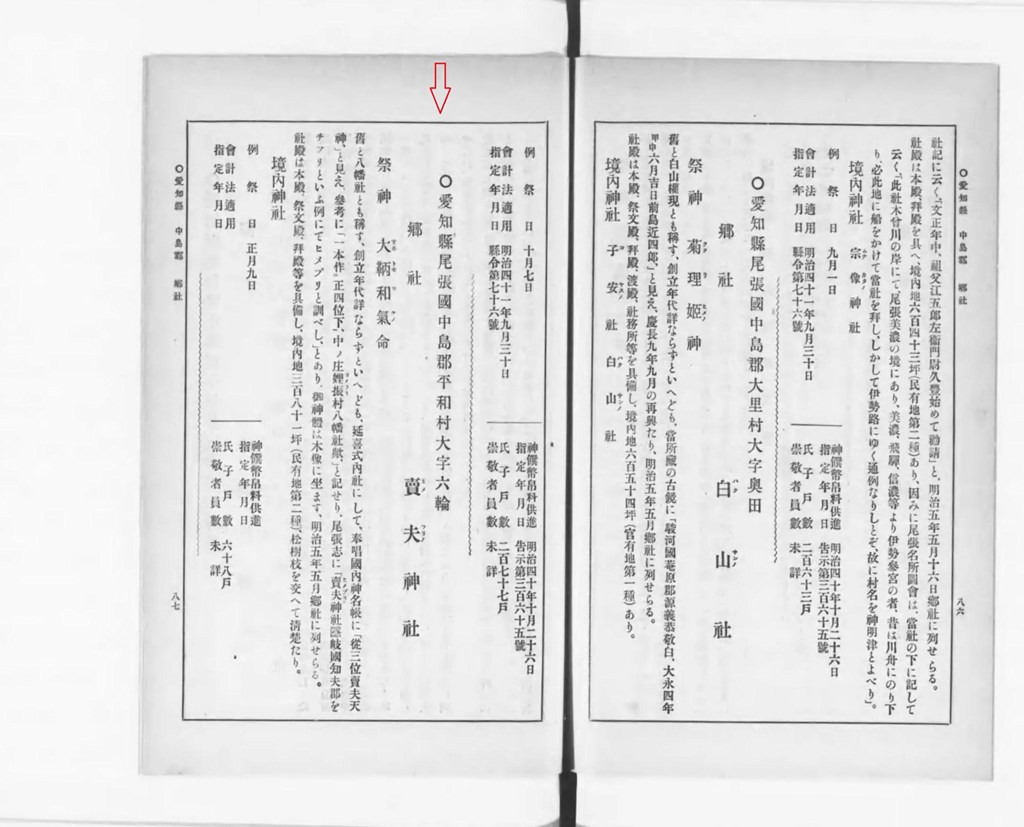 〇愛知縣 中島郡 鄕社
八六
社記に云く、「文正年中、祖父江五郎左衞門尉久豐始めて勸請」と、明治五年五月十六日鄕社に列せらる。
社殿は本殿、拜殿を具へ、境內地六百四十三坪(民有地第二種)あり、因みに尾張名所圖會は、當社の下に記して
云く、「此社木廿川の岸にて、尾張美濃の境にあり、美濃、飛驒、信濃等より伊勢參宮の者、昔は川舟にのり下
り、必此地に船をかけて當社を拜し、しかして伊勢路にゆく通例なりしとぞ、故に村名を神明津とよべり」。
境內神社 宗像神社
例祭日 九月一日
會計法適用指定年月日 明治四十一年九月三十日縣令第七十六號
神饌幣帛料供進指定年月日 明治四十年十月二十六日告示第三百六十五號
氏子戶數 二百六十三戶
崇敬者員數 未詳
〇愛知縣尾張國中島郡大里村大字奧田
鄕社 白山社
祭神 菊理姬神
舊と白山權現とも稱す、創立年代詳ならずといへども、當所藏の古鏡に、「駿河國菴原郡源義恭敬白、大永四年
甲申六月吉日前島近四郎」と見え、慶長九年九月の再興たり、明治五年五月鄕社に列せらる。
社殿は本殿、祭文殿、拜殿、渡殿、社務所等を具備し、境內地六百五十四坪(官有地第一種)あり。
境內神社 子安社 白山社
例祭日 十月七日
會計法適用指定年月日 明治四十一年九月三十日縣令第七十六號
神饌幣帛料供進指定年月日 明治四十年十月二十六日告示第三百六十五號
氏子戶數 二百七十七戶
崇敬者員數 未詳
〇愛知縣尾張國中島郡平和村大字六輪
鄕社 賣夫神社
祭神 大鞆和氣命
舊と八幡社とも稱す、創立年代詳ならずといへども、延喜式內社にして、奉唱國內神名帳に「從三位賣夫天
神」と見え、參考に「一本作正四位下、中ノ庄娌振村八幡社歟」と記せり、尾張志に「賣夫神社隱岐國知夫郡を
チフリといふ例にてヒメブリと調べし」とあり、御神體は木像に坐ます、明治五年五月鄕社に列せらる。
社殿は本殿、祭文殿、拜殿等を具備し、境內地三百八十一坪(民有地第二種)、松樹枝を交へて淸楚たり。
境內神社
例祭日 正月九日
會計法適用指定年月日
神饌幣帛料供進指定年月日
氏子戶數 六十八戶
崇敬者員數 未詳
〇愛知縣 中島郡 鄕社
八七